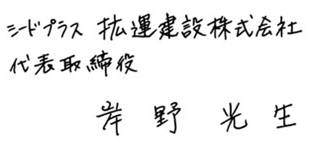 シードプラス 拡運建設株式会社
代表取締役
岸野 光生